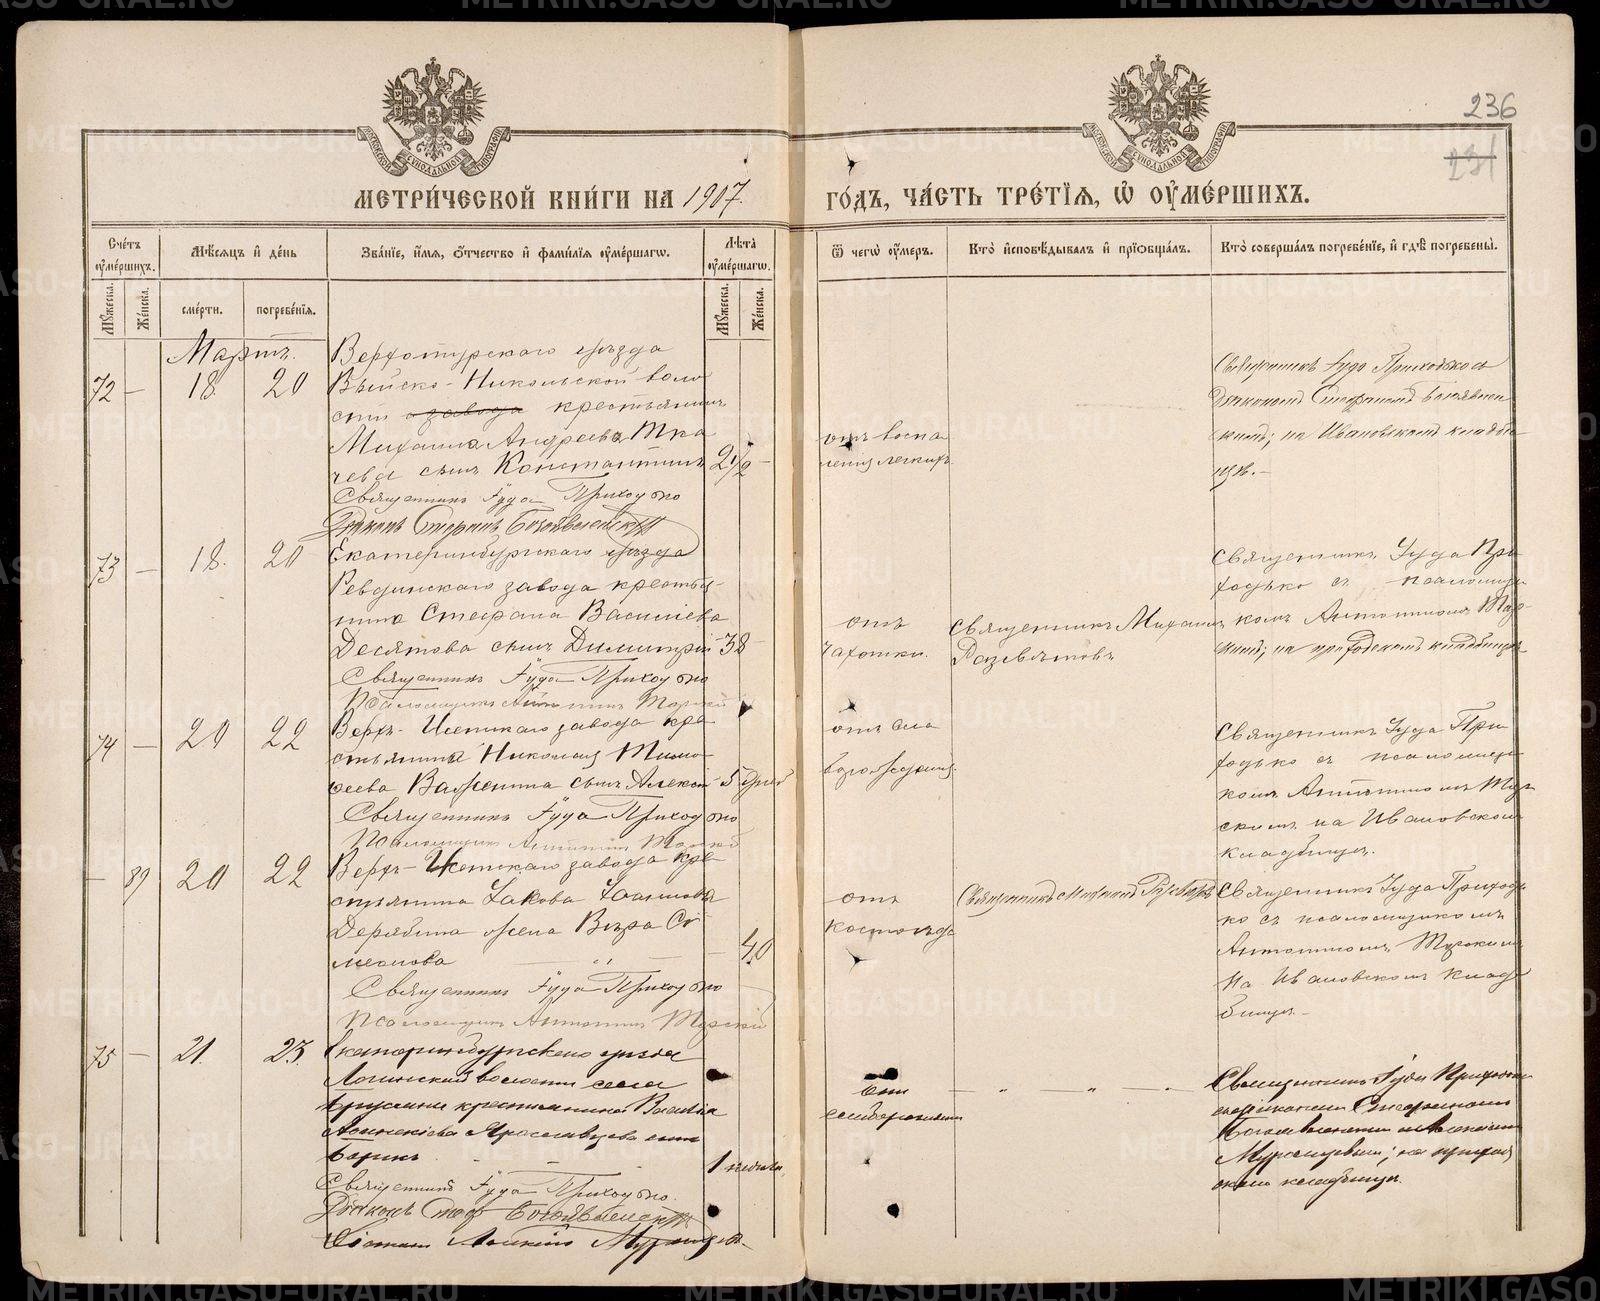 236
231
МОСКОВСКОЙ СѴНОДАЛЬНОЙ ТИПОГРАФІИ
МОСКОВСКОЙ СѴНОДАЛЬНОЙ ТИПОГРАФІИ
МЕТРИ́ЧЕСКОЙ КНИ́ГИ НА 1907.
ГО́ДЪ, ЧА́СТЬ ТРЕ́ТІѦ, Ѡ҆ ОУ҆МЕ́РШИХЪ.
Сче́тъ оу҆ме́ршихъ.
Мꙋ́жеска.
Же́нска.
Мѣ́сѧцъ и҆ де́нь
сме́рти.
погребе́нїѧ.
Зва́нїе, и҆́мѧ, ѻ҆́тчество и҆ фами́лїѧ оу҆ме́ршагѡ.
Лѣ́та оу҆ме́ршагѡ.
Мꙋ́жеска.
Же́нска.
Ѿ чегѡ̀ оу҆́меръ.
Кто̀ и҆сповѣ́дывалъ и҆ прїѡбща́лъ.
Кто̀ соверша́лъ погребе́нїе, и҆ гдѣ̀ погребены̀.
Мартъ.
72 — 18. 20
Верхотурскаго уѣзда
Выйско-Никольской воло
сти завода крестьянина
Михаила Андреева Тка
чева сынъ Константинъ 2 1/2 —
Священникъ Іуда Приходько
Діаконъ Стефанъ Богоявленскій
отъ воспа
ленія легкихъ.
Священникъ Іуда Приходько съ
діакономъ Стефаномъ Богоявлен
скимъ; на Ивановскомъ кладби
щѣ.—
73 — 18. 20
Екатеринбургскаго уѣзда
Ревдинскаго завода крестья-
нина Стефана Василіева
Десятова сынъ Димитрій 38 —
Священникъ Іуда Приходько
Псаломщикъ Антонинъ Торскій
отъ
чахотки.
Священникъ Михаилъ
Священникъ Іуда При
ходько съ псаломщи
комъ Антониномъ Тор-
скимъ; на приходскомъ кладбищѣ
74 — 20 22
Верхъ-Исетскаго завода кре
стьянина Николая Тимо
феева Важенина сынъ Алексѣй 5 дней
Священникъ Іуда Приходько
Псаломщикъ Антонинъ Торскій
отъ сла
борожденія.
Священникъ Іуда При
ходько съ псаломщи
комъ Антониномъ Тор
скимъ на Ивановскомъ
кладбищѣ.
— 89 20 22
Верхъ-Исетскаго завода кре
стьянина Іакова Іоаннова
Дерябина жена Вѣра Си
меонова — 40
Священникъ Іуда Приходько
Псаломщикъ Антонинъ Торскій
отъ
костоѣда
Священникъ Михаилъ
Священникъ Іуда Приходь
ко съ псаломщикомъ
Антониномъ Торскимъ
на Ивановскомъ клад
бищѣ.—
75 — 21. 23.
Екатеринбургскаго уѣзда
волости села
крестьянина Василія
Ярославцева сынъ
Борисъ 1 недѣля
Священникъ Іуда Приходько.
Діаконъ Стеф Богоявленскій
отъ
слаборожденія
Священникъ Іуда Приходько
съ діакономъ Стефаномъ
Богоявленскимъ
на приход
скомъ кладбищѣ.
METRIKI.GASO-URAL.RU